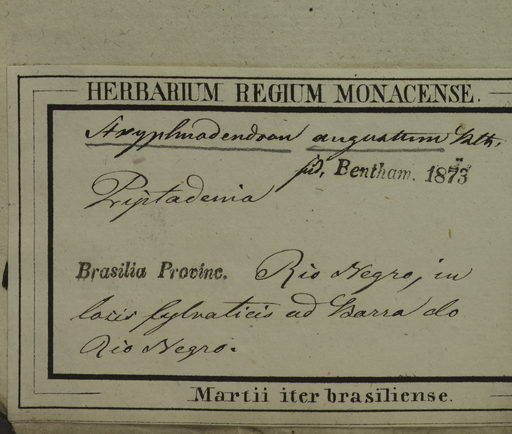 HERBARIUM REGIUM MONACENSE.
Stryphnodendron angustum Bth.
fid. Bentham. 1873
Piptadenia
Brasilia Provinc. Rio Negro, in
locis sylvaticis ad Barra do
Rio Negro.
Martii iter brasiliense.